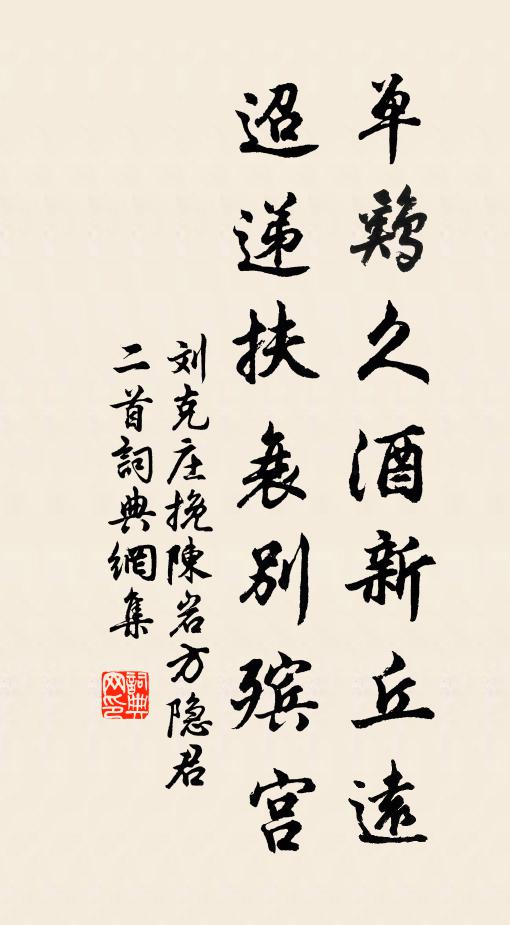 单鷄久酒新丘遠
迢递扶衰别殡宫
刘克庄挽陳岩方隐君
二首詞典網集
詞典网印